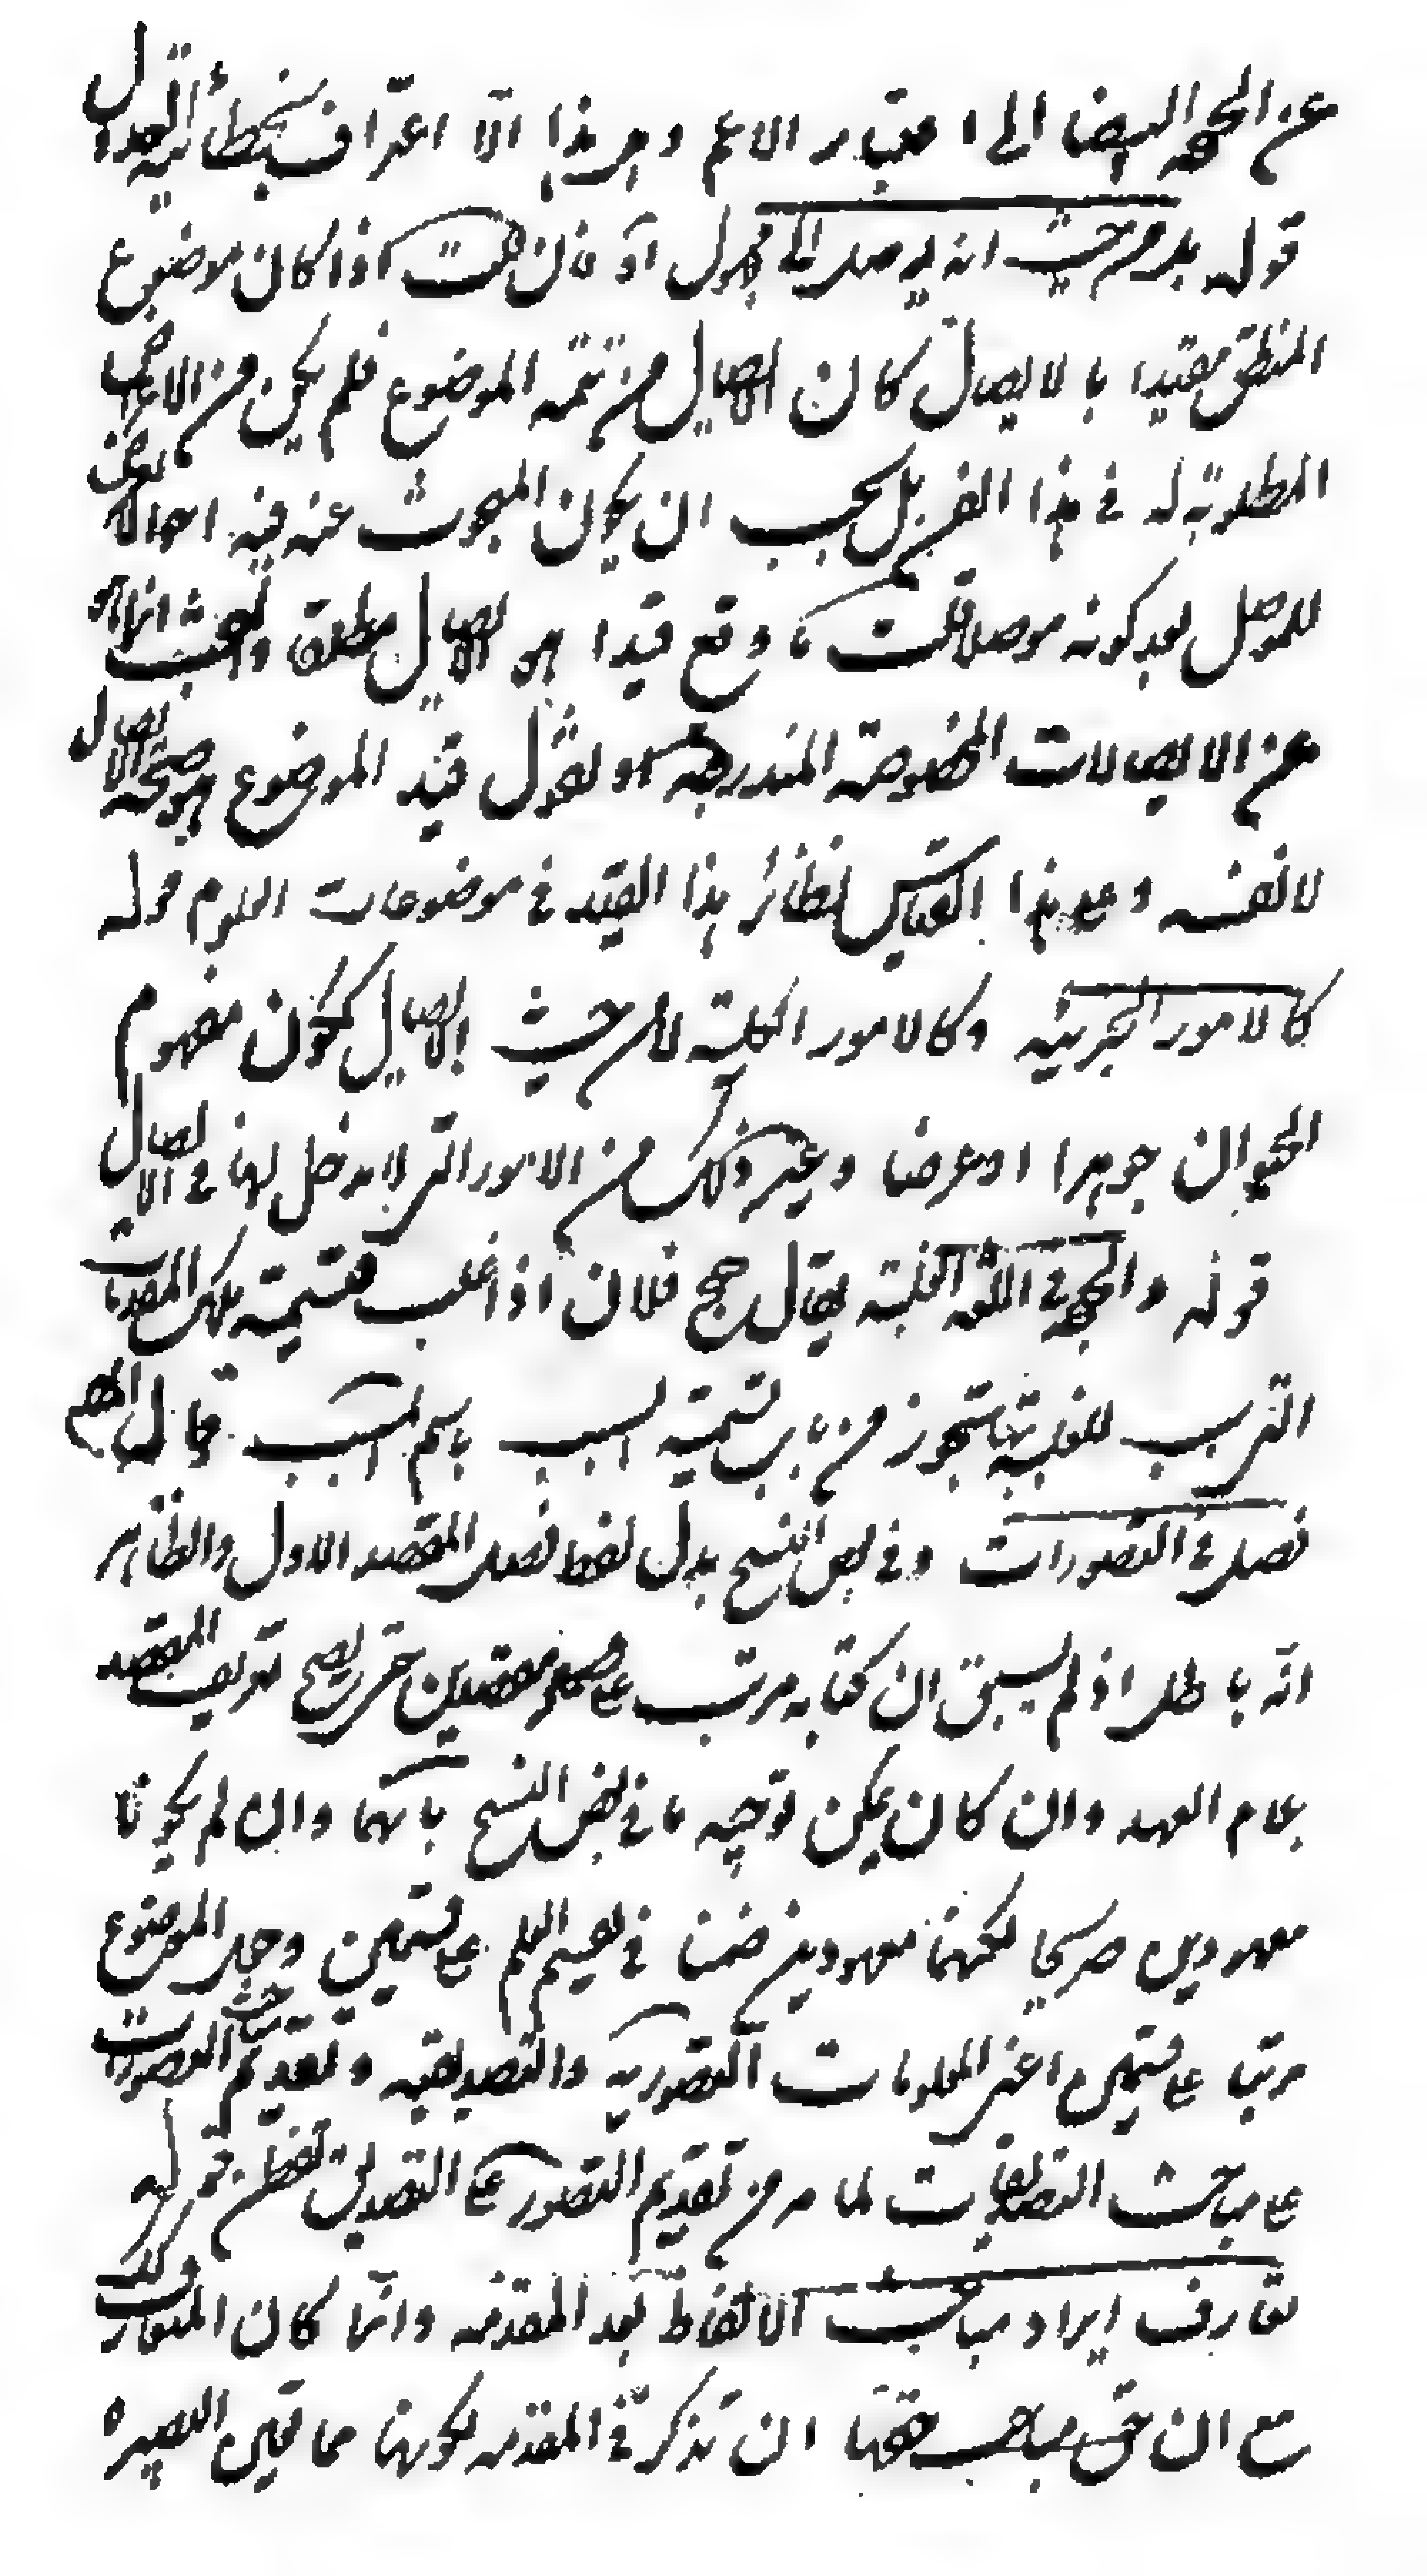 عن الحجة ايضا الى اعتبار الاعم وهل هذا الا اعتراف بتخطائه العدول
قوله بل من حيث انه يوصل الى مجهول آه فان قلت اذا كان موضوع
المنطق مقيدا بالايصال كان الايصال من تتمة الموضوع فلم يكن من الاعراض
المطلوبة له في هذا الفن بل يجب ان يكون المبحوث عنه فيه احوالا تعرض
للموصل بعد كونه موصلا قلت ما وقع قيدا هو الايصال مطلقا والبحث انما هو
عن الايصالات المخصوصة المندرجة او نقول قيد الموضوع هو صحة الايصال
لا نفسه وعلى هذا القياس نظائر هذا القيد في موضوعات العلوم قوله
كالامور الجزئية وكالامور الكلية لا من حيث الايصال ككون مفهوم
الحيوان جوهرا او عرضا وغير ذلك من الامور التي لا مدخل لها في الايصال
قوله والحجة في اللغة الغلبة يقال حج فلان اذا غلب فتسمية تلك المقدمات
التي سبب للغلبة بها تجوز من باب تسمية السبب باسم المسبب قال المص
فصل في التصورات وفي بعض النسخ بدل لفظ فصل المقصد الاول والظاهر
انه باطل اذ لم يسبق ان كتابه مرتب على مقصدين حتى يصح تعريف المقصد
بلام العهد وان كان يمكن توجيه ما في بعض النسخ بانهما وان لم يكونا
معهودين صريحا لكنهما معهودين ضمنا في تقسيم العلم على قسمين وجعل الموضوع
مرتبا على قسمين اعني المعلومات التصورية والتصديقية وتقديم مباحث التصورات
على مباحث التصديقات لما مر من تقديم التصور على التصديق لفظا قوله
تعارف ايراد مباحث الالفاظ بعد المقدمة وانما كان المتعارف ذلك
مع ان حق مباحث حقها ان تذكر في المقدمة لكونها مما تعين البصيرة